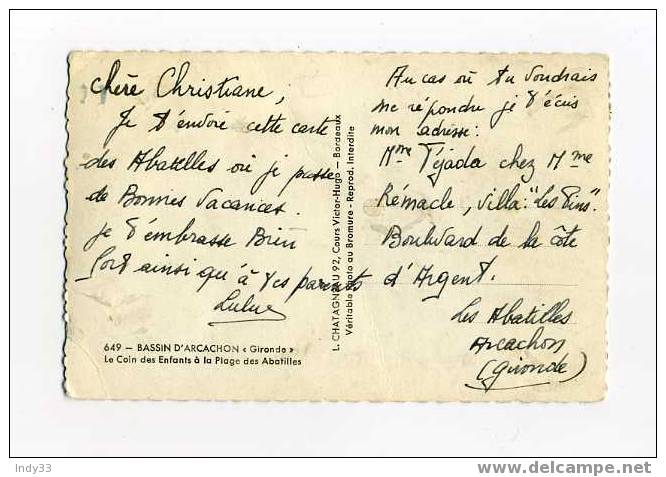 chère Christiane,
Je t'envoie cette carte
des Abatilles où je passe
de Bonnes Vacances.
je t'embrasse Bien
fort ainsi qu'à tes parents
Lulue
649 — BASSIN D'ARCACHON « Gironde »
Le Coin des Enfants à la Plage des Abatilles
L. CHATAGNEAU 92, Cours Victor-Hugo — Bordeaux
Véritable Photo au Bromure - Reprod. Interdite
Au cas où tu voudrais
me répondre je t'écris
mon adresse:
Mme Téjada chez Mme
Rémacle, villa: "Les Pins".
Boulevard de la côte
d'Argent.
Les Abatilles
Arcachon
(Gironde)
Indy33
www.delcampe.net